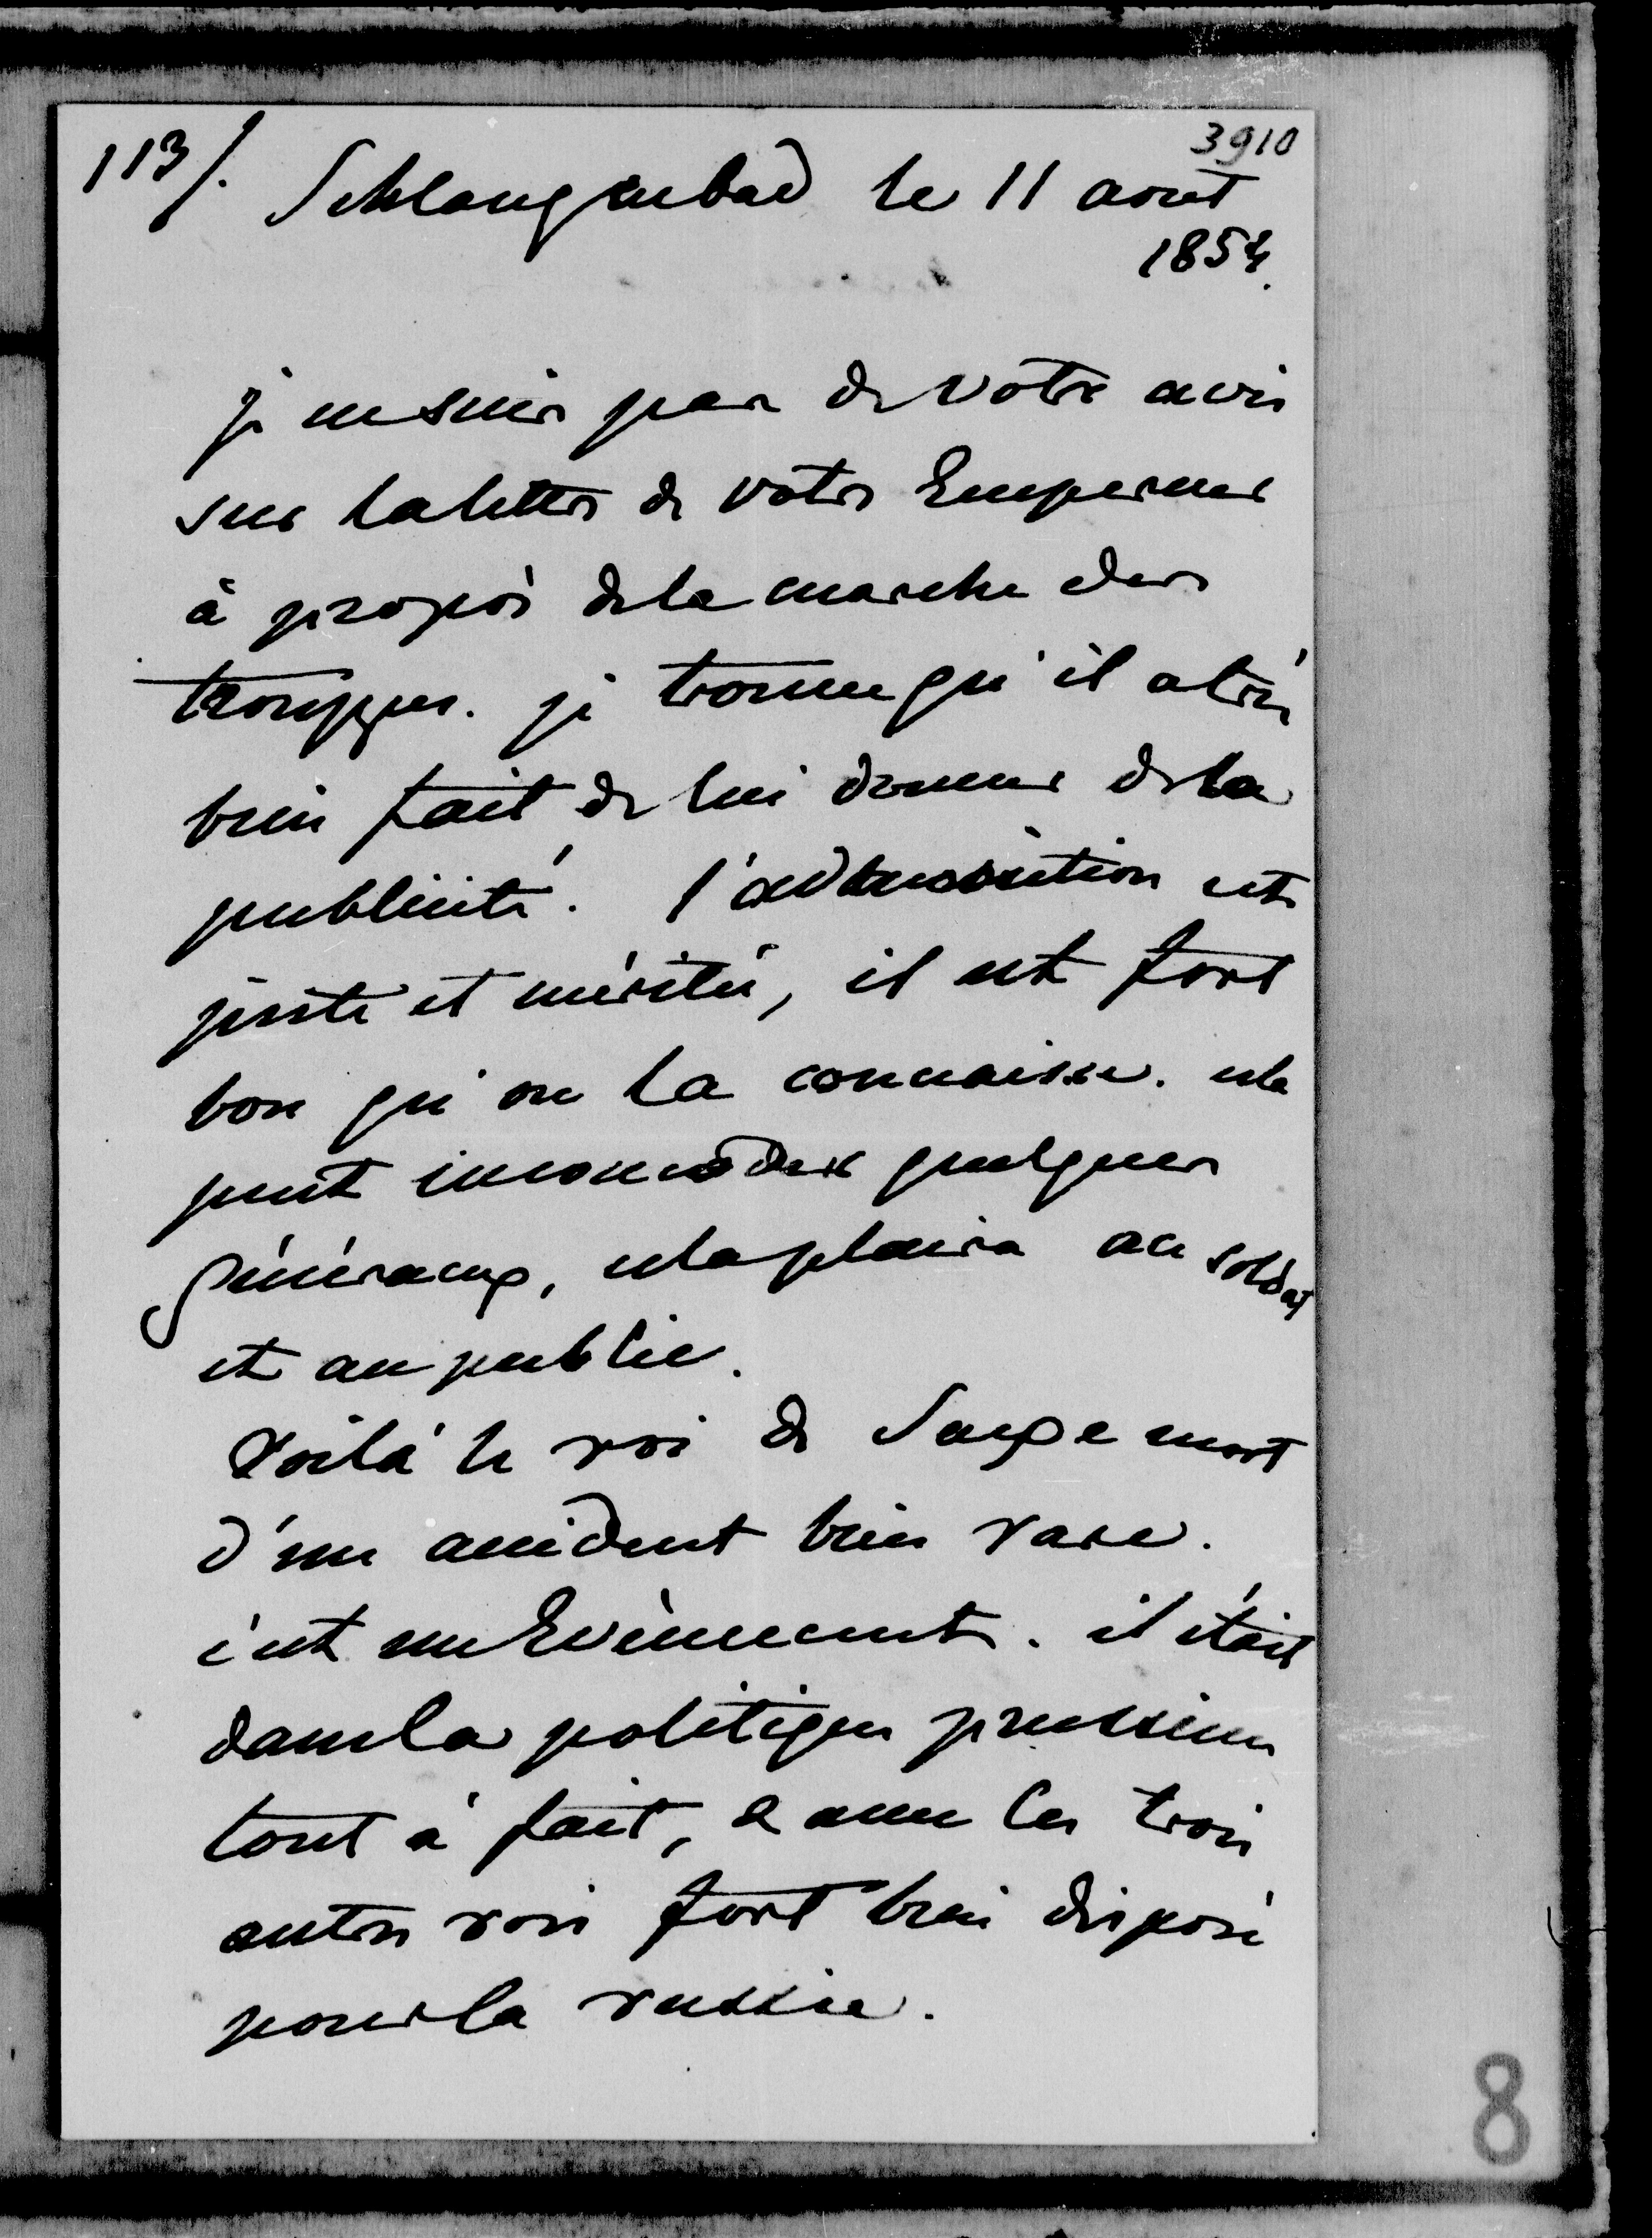 3910
113/. Schlangenbad le 11 aout
1854.
je ne suis pas de votre avis
sur la lettre de votre Empereur
à propos de la marche des
trouppes. je trouve qu'il a très
bien fait de lui donner de la
publicité. l'admonition est
juste et méritée, il est fort
bon qu'on la connaisse. cela
peut incommoder quelques
généraux, cela plaira au soldat
et au public.
Voilà le roi de Saxe mort
d'un accident bien rare.
c'est un Evènement. il était
dans la politique prussienne
tout à fait, & avec les trois
autres rois fort bien disposé
pour la russie.
8